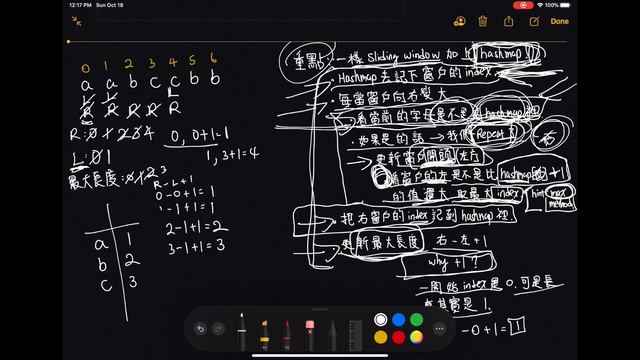 12:17 PM Sun Oct 18
100%
Done
0 1 2 3 4 5 6
a a b c c b b
L L L
R R R R R
R: 0 1 2 3 4
L: 0 1
0, 0+1=1
1, 3+1=4
最大長度: 0 1 2 3
R-L+1
0-0+1=1
1-1+1=1
2-1+1=2
3-1+1=3
a 1
b 2
c 3
重點: 一樣 Sliding window 加上 hashmap
Hashmap 去記下窗戶的 index
每當窗戶向右變大
看當前的字母是不是在 hashmap 裡
如果是的話 → 我們 Repeat 了
更新窗戶開頭 左方
窗戶的左是不是比 hashmap +1
的值還大 取最大 index hint max method
把右窗戶的 index 記到 hashmap 裡
更新最大長度 右-左+1
why +1?
一開始 index 是 0, 可是長
度其實是 1
-0+1=1